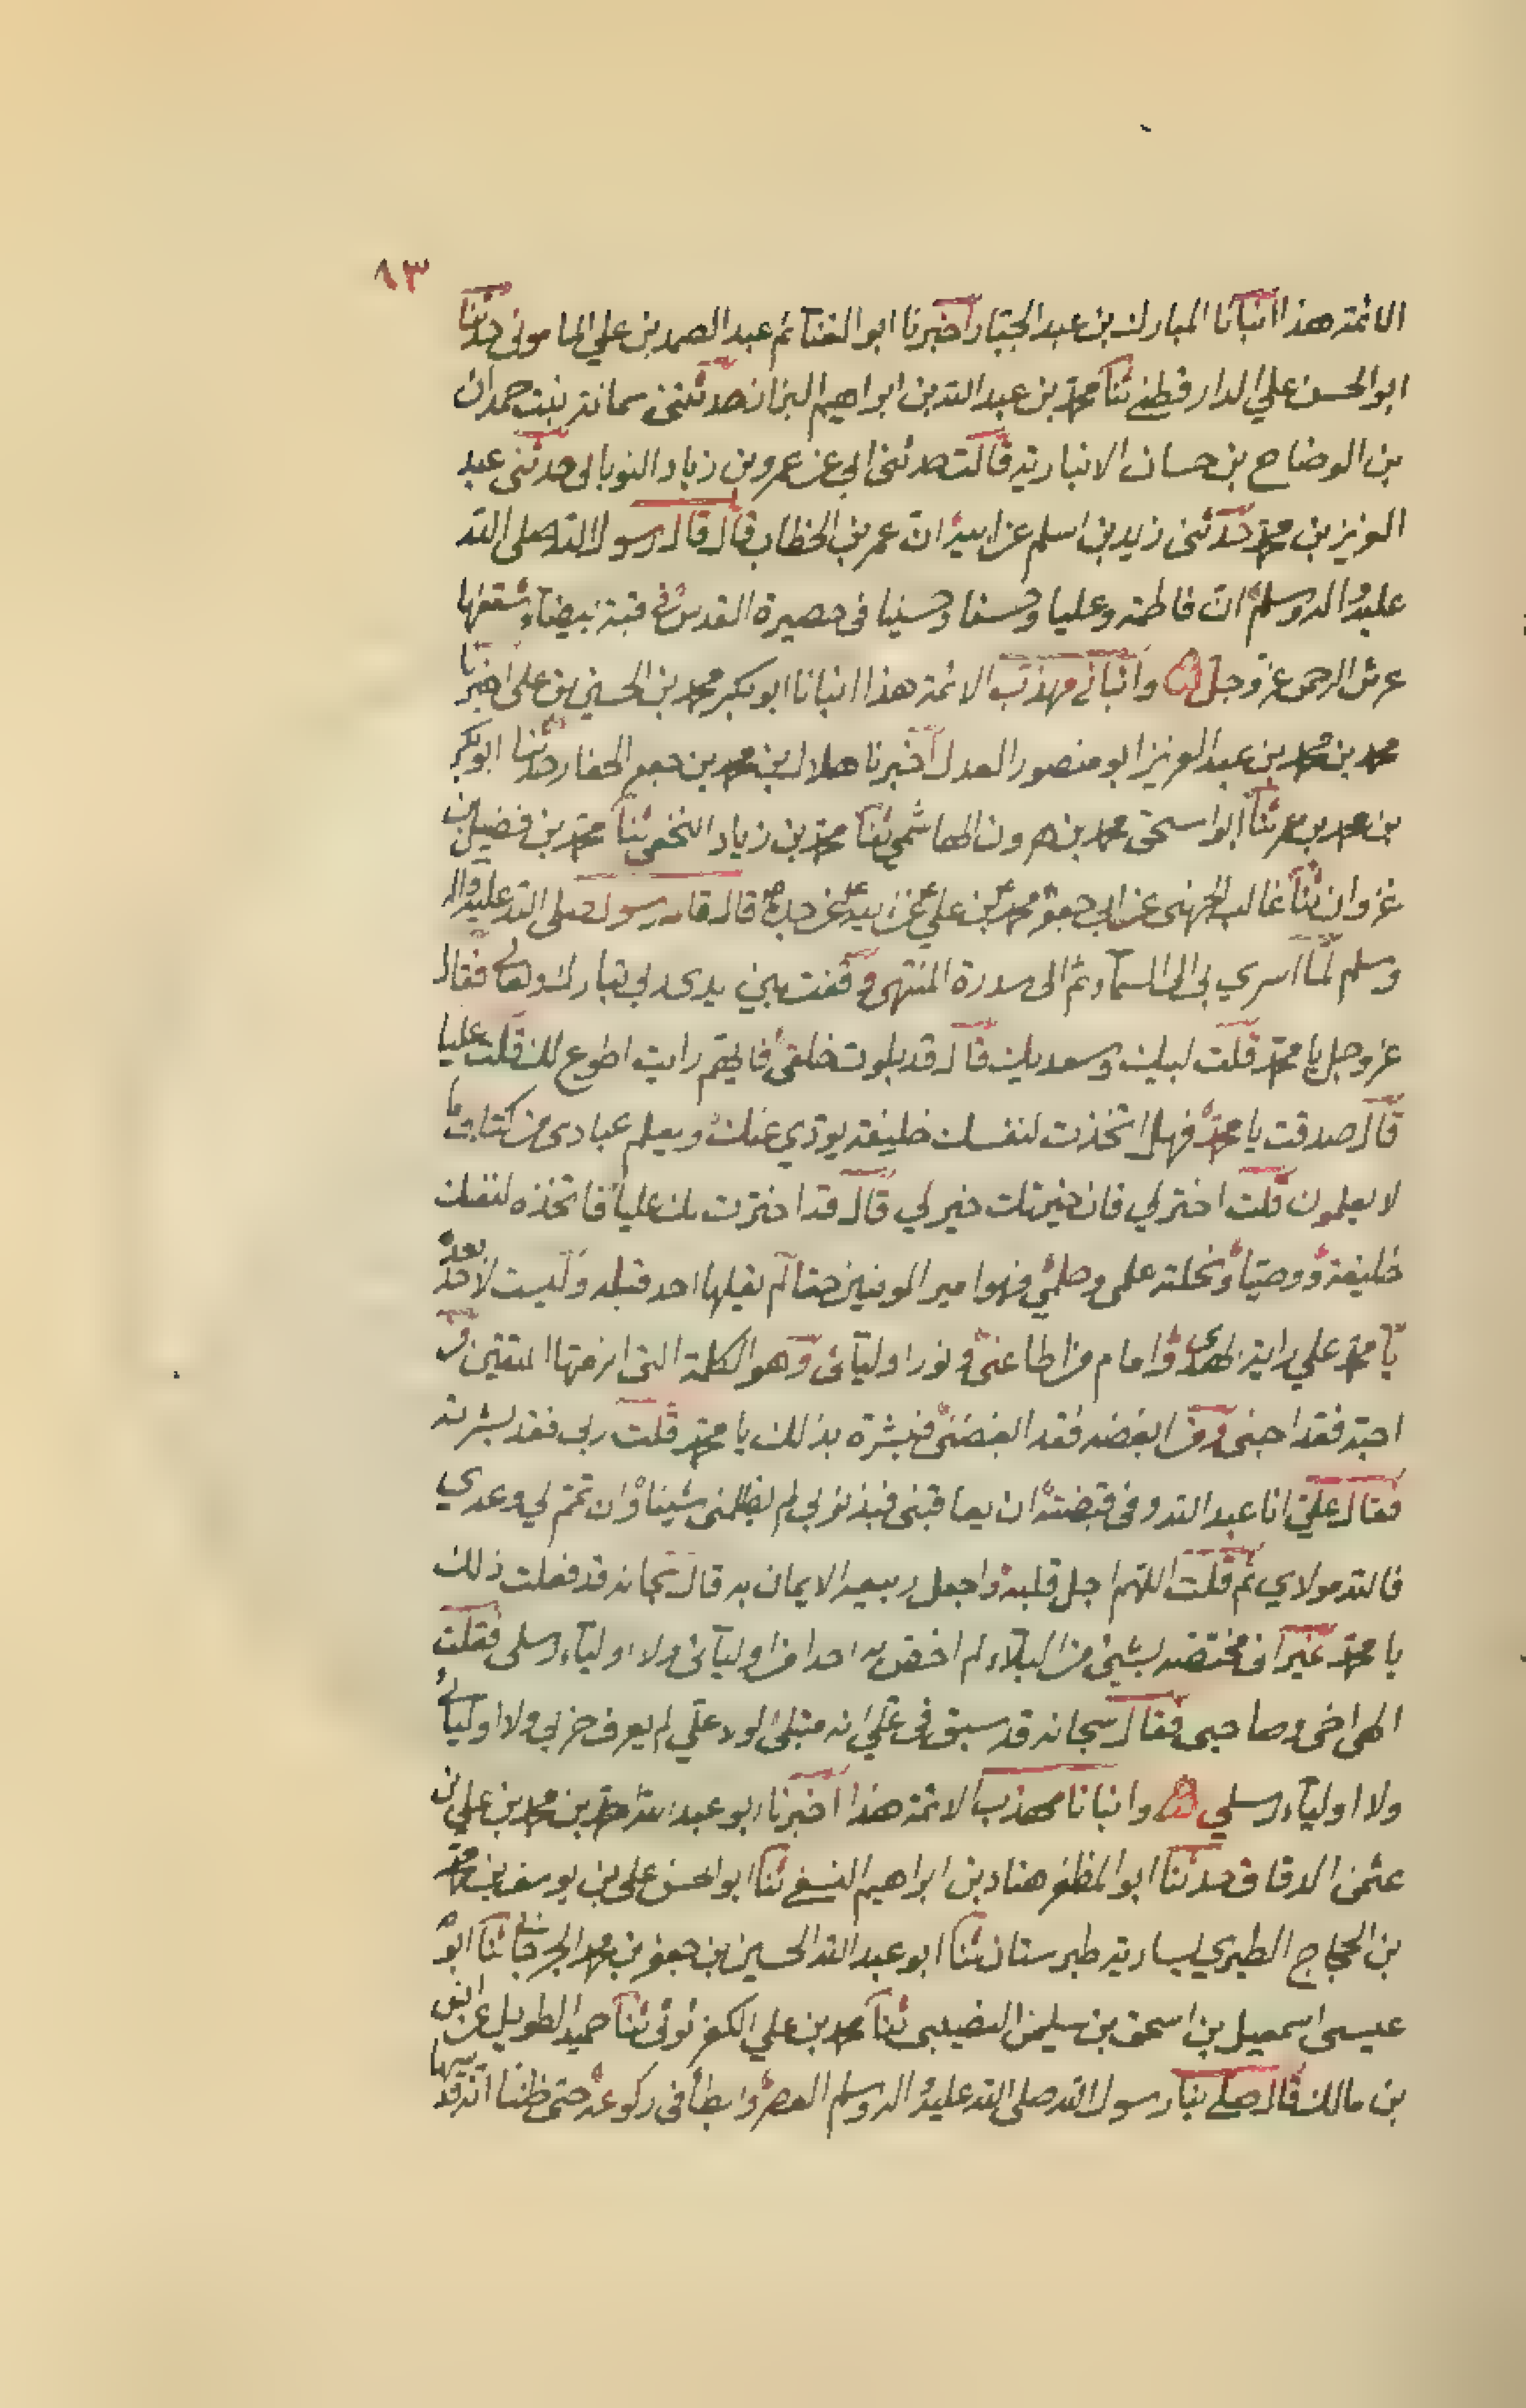 ٨٣
الائمة هذا انبانا المبارك بن عبد الجبار اخبرنا ابو الغنآئم عبد الصمد بن علي المامونى حدثنا
ابو الحسن علي الدارقطنى ثنا محمد بن عبد الله بن ابراهيم البزاز حدثتنى سمانة بنت حمدان
بن الوضاح بن حسان الانبارية قالت حدثنى ابي عن عمرو بن زياد الثوبانى حدثنى عبد
العزيز بن محمد حدثنى زيد بن اسلم عن ابيه ان عمر بن الخطاب قال قال رسول الله صلى الله
عليه واله وسلم ان فاطمة وعليا وحسنا وحسينا فى حضيرة القدس فى قبة بيضآء سقفها
عرش الرحمن عز وجل وانبانى مهذب الائمة هذا انبانا ابو بكر محمد بن الحسين بن على اخبرنا
محمد بن محمد بن عبد العزيز ابو منصور العدل اخبرنا هلال بن محمد بن جعفر الحفار حدثنا ابو بكر
بن محمد بن عمر ثنا ابو اسحق محمد بن هرون الهاشمي ثنا محمد بن زياد النخعى ثنا محمد بن فضيل بن
غزوان ثنا غالب الجهنى عن ابي جعفر محمد بن علي عن ابيه عن جده قال قال رسول صلى الله عليه واله
وسلم لمّا اسري بى الى السمآء ثم الى سدرة المنتهى وقفت بين يدى ربي تبارك وتعالى فقال
عز وجل يا محمد قلت لبيك وسعديك قال قد بلوت خلقى فايهم رايت اطوع لك قلت عليا
قال صدقت يا محمد فهل اتخذت لنفسك خليفة يودي عنك ويعلم عبادى من كتابى ما
لا يعلمون قلت اختر لي فان خيرتك خير لي قال قد اخترت لك عليا فاتخذه لنفسك
خليفة ووصيّا ونحلته علمى وحلمي فهو امير المومنين حقا لم يقلها احد قبله وليست لاحد بعده
يا محمد علي راية الهدى وامام من اطاعنى ونور اوليآئى وهو الكلمة التى الزمتها المتقين من
احبه فقد احبنى ومن ابغضه فقد ابغضنى فبشره بذلك يا محمد قلت ربى فقد بشرته
فقال علي انا عبد الله وفى قبضته ان يعاقبنى فبذنوبى لم يظلمنى شيئا وان تمم لي وعدي
فالله مولاي ثم قلت اللهم اجل قلبه واجعل ربيعه الايمان به قال سبحانه قد فعلت ذلك
يا محمد غير انى مختصه بشئ من البلآء لم اخص به احدا من اوليآئى ولا اوليآء رسلى فقلت
الهى اخى وصاحبى فقال سبحانه قد سبق فى علمى انه مبتلى لولا علي لم يعرف حزبي ولا اوليآئى
ولا اوليآء رسلي وانبانا مهذب الائمة هذا اخبرنا ابو عبد الله احمد بن محمد بن علي بن
عثمن الدقاق حدثنا ابو المظفر هناد بن ابراهيم النسفى ثنا ابو الحسن على بن يوسف بن محمد
بن الحجاج الطبري بسارية طبرستان ثنا ابو عبد الله الحسين بن جعفر بن محمد الجرجانى ثنا ابو
عيسى اسمعيل بن اسحق بن سليمن النصيبى ثنا محمد بن علي الكفرتوثى ثنا حميد الطويل عن انس
بن مالك قال صلى بنا رسول الله صلى الله عليه واله وسلم العصر وابطأ فى ركوعه حتى ظننا انه قد سها